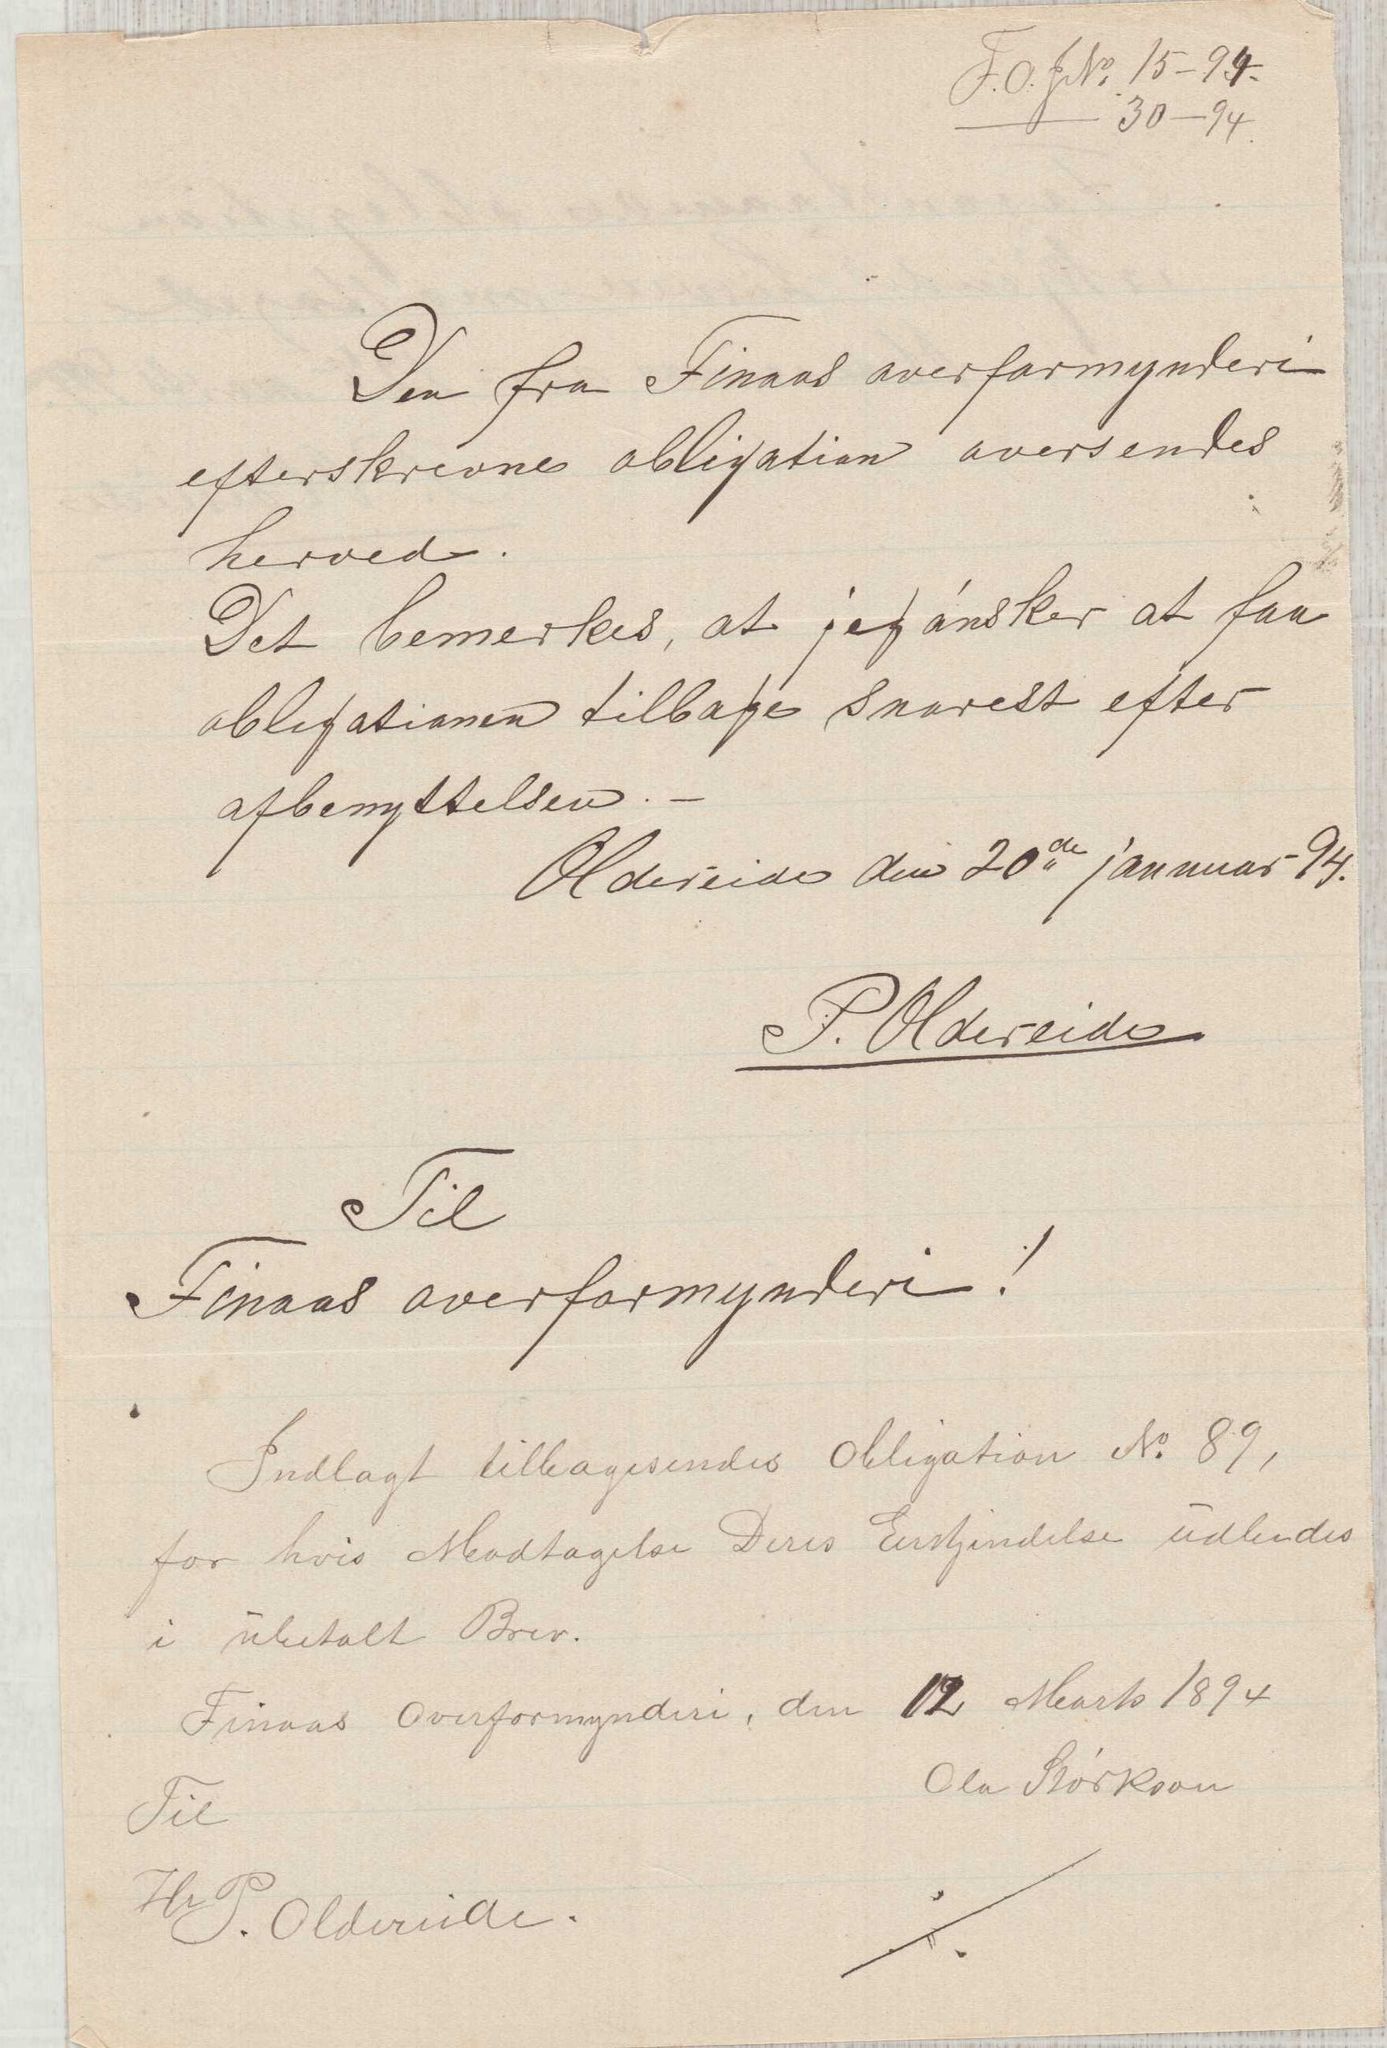 F.O.JNo. 15-94.
30-94.
Den fra Finaas overformynderi
efterskrevne obligation oversendes
herved.
Det bemerkes, at jeg ønsker at faa
obligationen tilbage snarest efter
afbenyttelsen. –
Oldereide den 20de januar 94.
P. Oldereide
Til
Finaas overformynderi!
Indlagt tilbagesendes Obligation No. 89,
for hvis Modtagelse Deres Erkjendelse udbedes
i ubetalt Brev.
Finaas Overformynderi, den 12 Marts 1894
Ola Størkson
Til
Hr P. Oldereide.